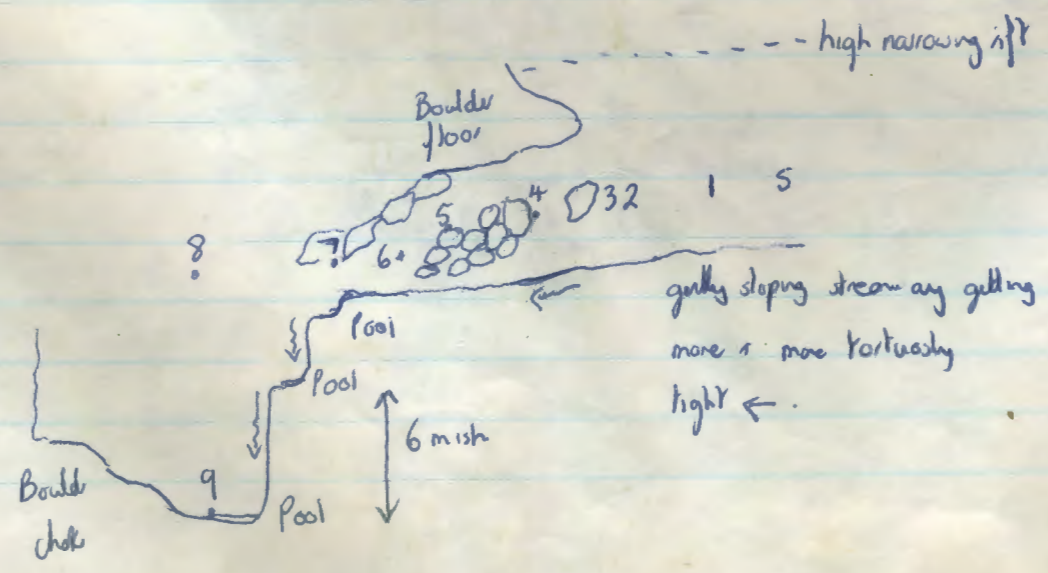 high narrowing rift
Boulder
floor
4
32
1
5
5
7
6
8
gently sloping stream getting
more & more tortuously
tight ←
Pool
Pool
6 mish
9
Pool
Boulder
choke